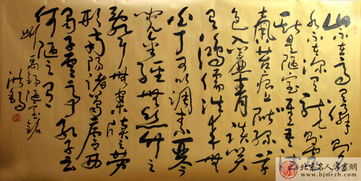 山不在高有仙
则名水不在深有龙则
灵斯是陋室惟吾德
馨苔痕上阶绿草
色入帘青谈笑
有鸿儒往来无
白丁可以调素琴
阅金经无丝竹之
乱耳无案牍之劳
形南阳诸葛庐西
蜀子云亭孔子云
何陋之有
刘禹锡陋室铭
北京名人字画网